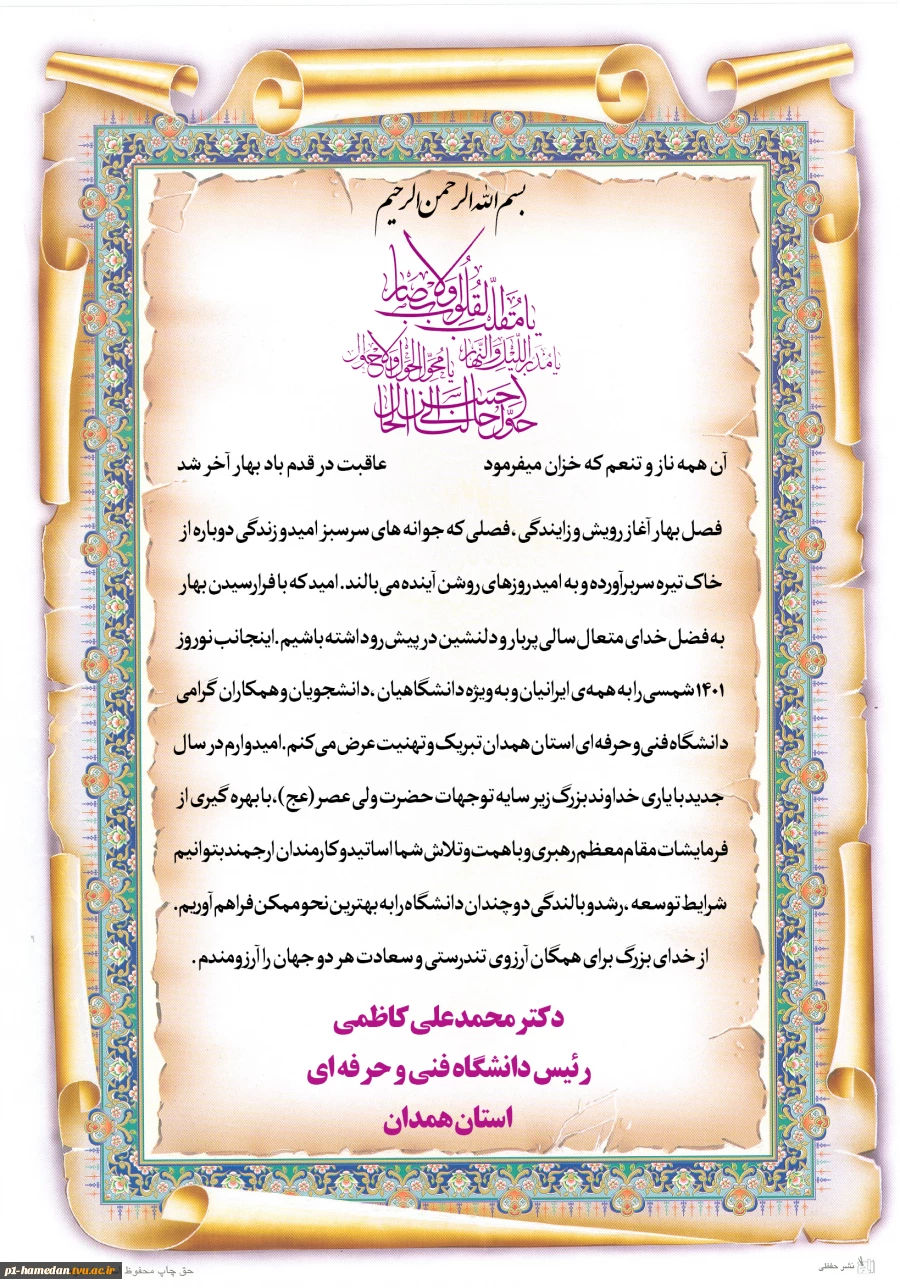 بسم الله الرحمن الرحیم
یا مُقَلِّبَ القُلُوبِ وَالاَبصار
یا مُدَبِّرَ اللَّیلِ وَالنَّهار یا مُحَوِّلَ الحَولِ وَالاَحوال
حَوِّل حالَنا اِلی اَحسَنِ الحال
آن همه ناز و تنعم که خزان میفرمود عاقبت در قدم باد بهار آخر شد
فصل بهار آغاز رویش و زایندگی ، فصلی که جوانه های سرسبز امید و زندگی دوباره از
خاک تیره سر برآورده و به امید روزهای روشن آینده می بالند. امید که با فرارسیدن بهار
به فضل خدای متعال سالی پربار و دلنشین در پیش رو داشته باشیم . اینجانب نوروز
۱۴۰۱ شمسی را به همه‌ی ایرانیان و به ویژه دانشگاهیان ، دانشجویان و همکاران گرامی
دانشگاه فنی و حرفه ای استان همدان تبریک و تهنیت عرض می کنم . امیدوارم در سال
جدید با یاری خداوند بزرگ زیر سایه توجهات حضرت ولی عصر (عج)، با بهره گیری از
فرمایشات مقام معظم رهبری و با همت و تلاش شما اساتید و کارمندان ارجمند بتوانیم
شرایط توسعه ، رشد و بالندگی دو چندان دانشگاه را به بهترین نحو ممکن فراهم آوریم.
از خدای بزرگ برای همگان آرزوی تندرستی و سعادت هر دو جهان را آرزومندم .
دکتر محمدعلی کاظمی
رئیس دانشگاه فنی و حرفه ای
استان همدان
نشر حفظی
حق چاپ محفوظ
p1-hamedan.tvu.ac.ir